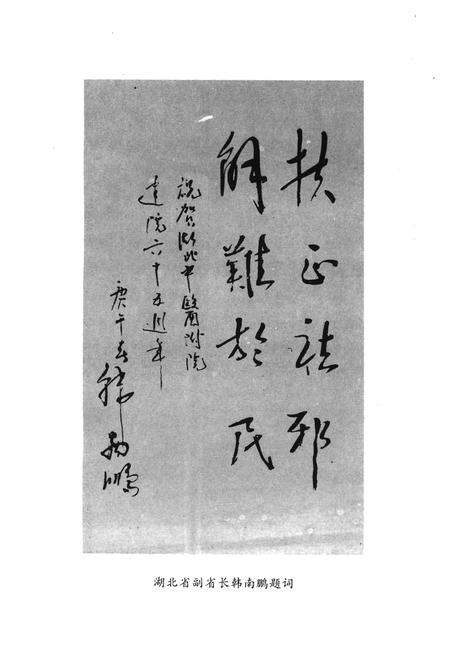 扶正祛邪
解難於民
祝贺湖北中醫附院
建院六十五週年
庚午春 韩南鹏
湖北省副省长韩南鹏题词